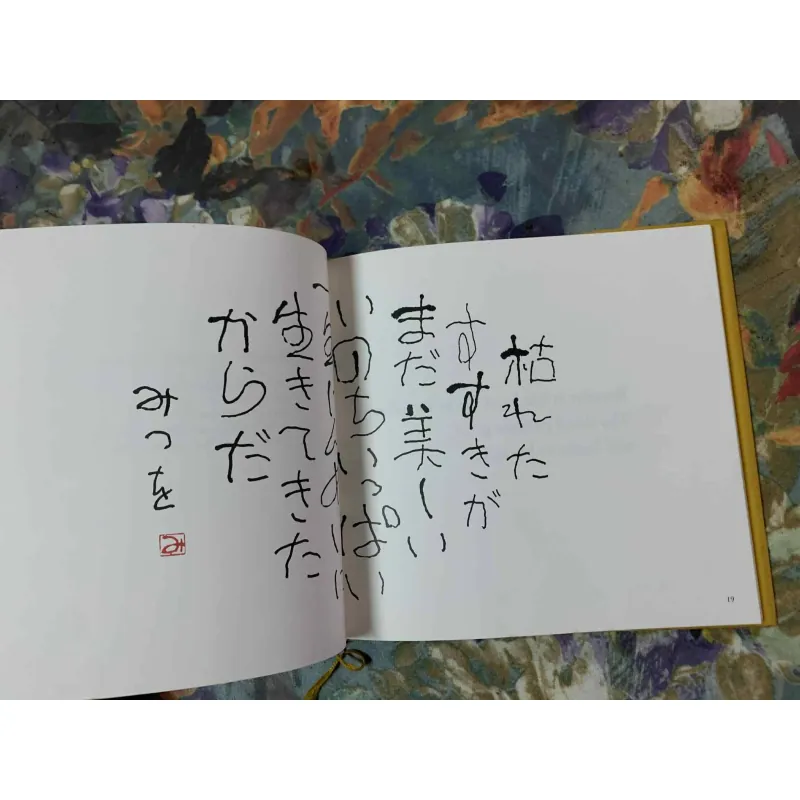 枯れた
すすきが
まだ美しい
いのちいっぱい
生きてきた
からだ
みつを
み
19